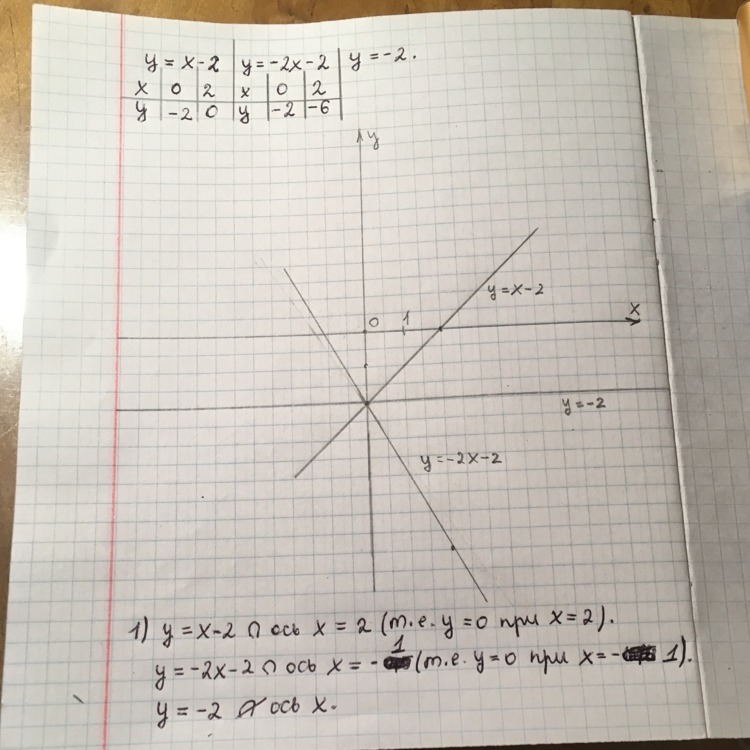 y = x - 2 | y = -2x - 2 | y = -2.
x | 0 | 2 | x | 0 | 2
y | -2 | 0 | y | -2 | -6
y
y = x - 2
0 1 x
y = -2
y = -2x - 2
1) y = x - 2 ∩ ось x = 2 (т.е. y = 0 при x = 2).
y = -2x - 2 ∩ ось x = -1 (т.е. y = 0 при x = - 1).
y = -2 ∩̸ ось x.